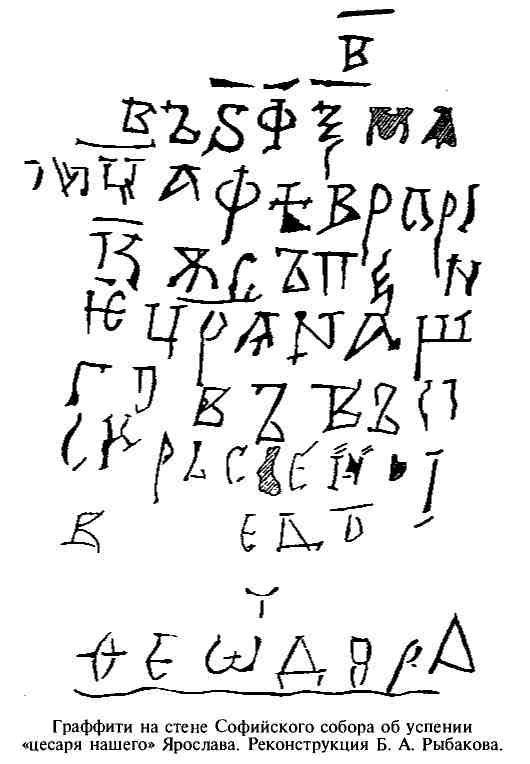 В
ВЪ ЅФѮ МА
МЦА ФЕВРАРІ
К ѪСЪПЕ N
ѤЦРАNАШ
ГО ВЪ ВЪ
СКРЬСЕNІ
В ЕД
ѲЕѠДОРА
Граффити на стене Софийского собора об успении
«цесаря нашего» Ярослава. Реконструкция Б. А. Рыбакова.